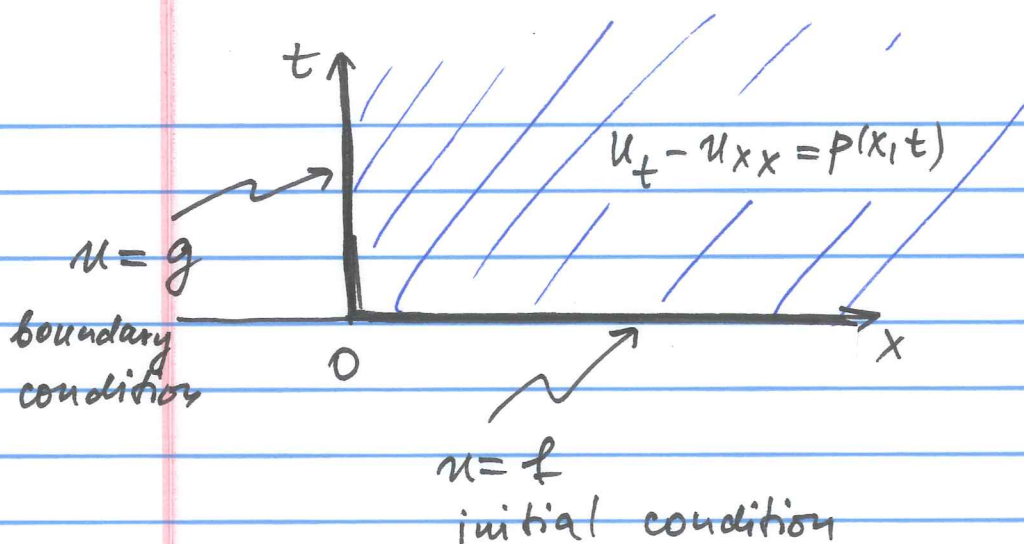 t
u_t - u_xx = p(x,t)
u = g
boundary
condition
0
x
u = f
initial condition